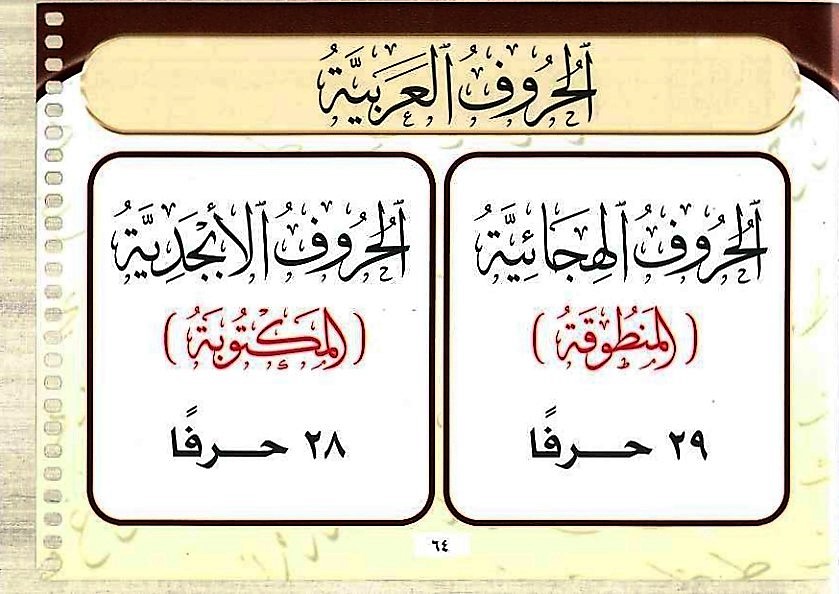 الحُرُوفُ العَرَبِيَّةُ
الحُرُوفُ الهِجَائِيَّةُ
(المَنطُوقَةُ)
٢٩ حــرفًا
الحُرُوفُ الأَبْجَدِيَّةُ
(المَكْتُوبَةُ)
٢٨ حــرفًا
٦٤